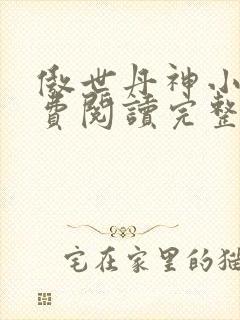 傲世丹神小
費閱讀完整
宅在家里的猫